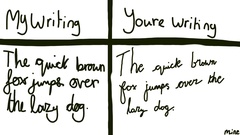 My Writing
Youre writing
The quick brown
fox jumps over
the lazy dog.
The quick brown
fox jumps over the
lazy dog.
mine